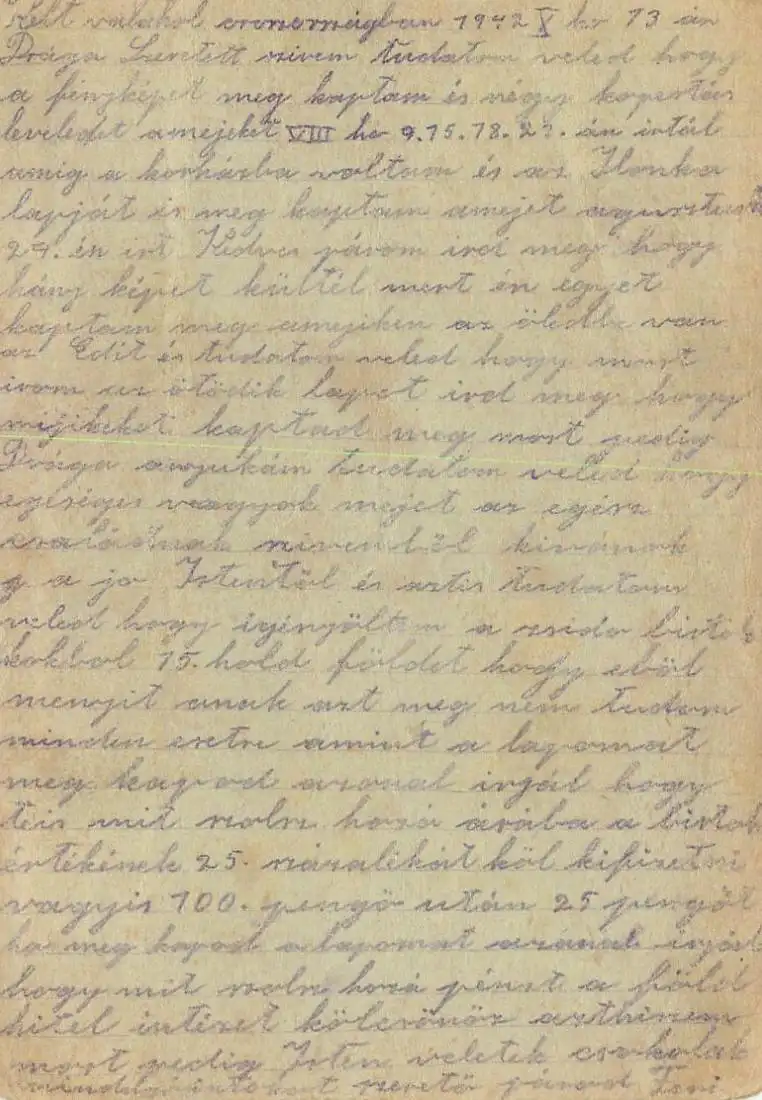 Kelt valahol oroszországban 1942 X hó 13 án
Drága Szeretett szivem tudatom veled hogy
a fényképet meg kaptam és négy kopertás
leveledet amejeket VIII ho 9.15.18.21. án irtál
amig a korházba voltam és az Ilonka
lapját is meg kaptam amejet agusztus
29. én irt Kedves párom ird meg hogy
hány képet kültél mert én egyet
kaptam meg amejiken az öledbe van
az Edit és tudatom veled hogy most
irom az ötödik lapot ird meg hogy
mijikeket kaptad meg most pedig
Drága anyukám tudatom veled hogy
egéségес vagyok mejet az egész
családnak szivemböl kivánok
a jo Istentöl és aztis tudatom
veled hogy igényöltem a zsido birto
kokbol 15. hold földet hogy eböl
menyit anak azt meg nem tudom
minden esetre amint a lapomat
meg kapod azonal irjál hogy
teis mit szolsz hozá árába a birtok
értékének 25. százalékát köl kifizetni
vagyis 100. pengö után 25 pengöt
ha meg kapod a lapomat azonal irjál
hogy mit szolsz hozá pénzt a föld
hitel intézet kölcsönöz azthiszem
most pedig Isten veletek csokolak
szeretö párod